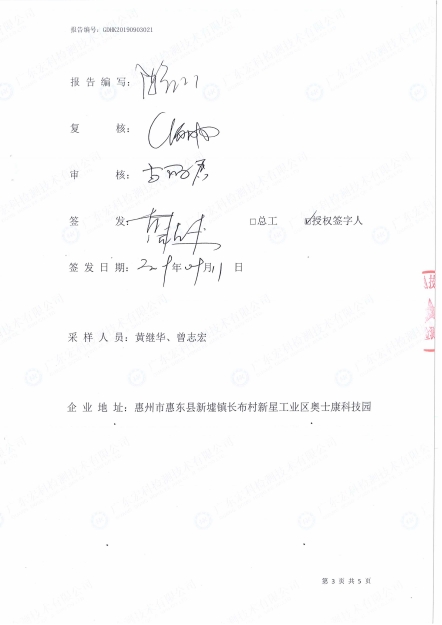 报告编号：GDHK20190903021
报 告 编 写：
复 核：
审 核：
签 发： □总工 ☑授权签字人
签 发 日 期：2019年09月11日
采 样 人 员：黄继华、曾志宏
企 业 地 址：惠州市惠东县新墟镇长布村新星工业区奥士康科技园
第 3 页 共 5 页